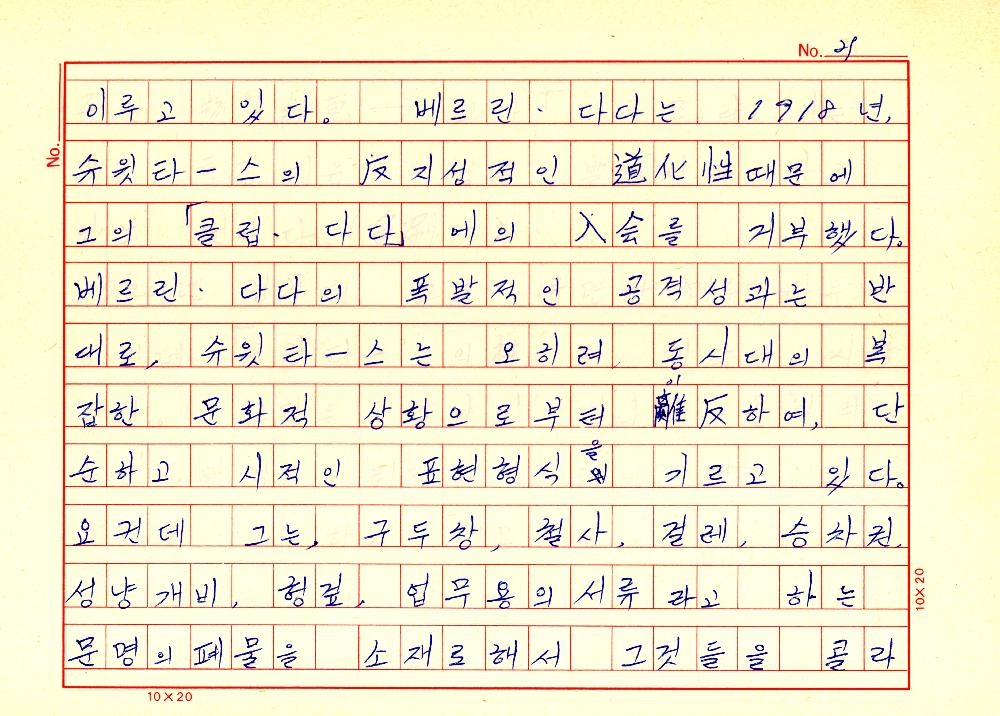 No. 21
이루고 있다. 베르린·다다는 1918년,
No.
슈윗타ー스의 反지성적인 道化性때문에
그의 「클럽·다다」에의 入会를 거부했다.
베르린·다다의 폭발적인 공격성과는 반
대로, 슈윗타ー스는 오히려 동시대의 복
잡한 문화적 상황으로부터 離反하여, 단
순하고 시적인 표현형식을 기르고 있다.
요컨데 그는, 구두창, 철사, 걸레, 승차권,
성냥개비, 헝겊, 업무용의 서류라고 하는
문명의 폐물을 소재로해서 그것들을 콜라
10×20
10×20